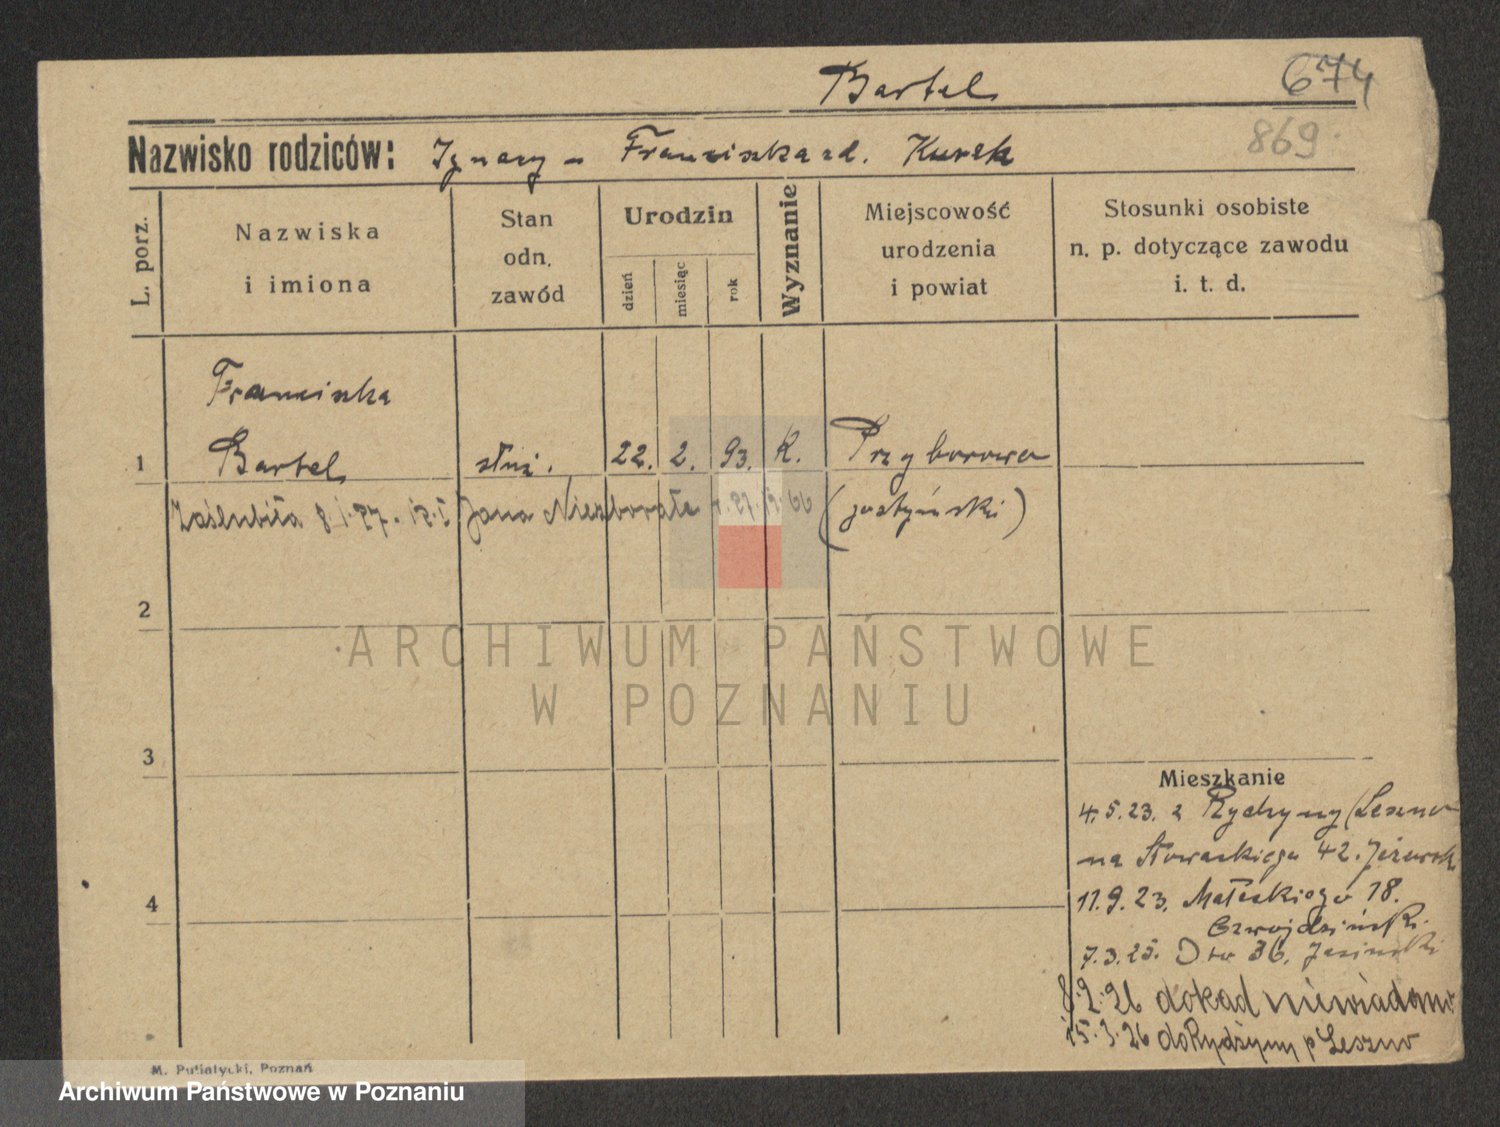 Bartel
674
869.
Nazwisko rodziców: Ignacy - Franciszka zd. Kurek
L. porz.
Nazwiska
i imiona
Stan
odn.
zawód
Urodzin
dzień
miesiąc
rok
Wyznanie
Miejscowość
urodzenia
i powiat
Stosunki osobiste
n. p. dotyczące zawodu
i. t. d.
Franciszka
1 Bartel służ. 22. 2. 93. K. Przyborowo
Zaślubiła Jana (gostyński)
2
3
4
Mieszkanie
4.5.23. z Rydzyny (Leszno
na Słowackiego 42.
11.9.23. Małeckiego 18.
Czwojdziński.
7.3.25. 36. Jasiński
8.2.26 dokąd niewiadomo
15.3.26 do Rydzyny p Leszno
M. Putiatycki, Poznań
ARCHIWUM PAŃSTWOWE
W POZNANIU
Archiwum Państwowe w Poznaniu